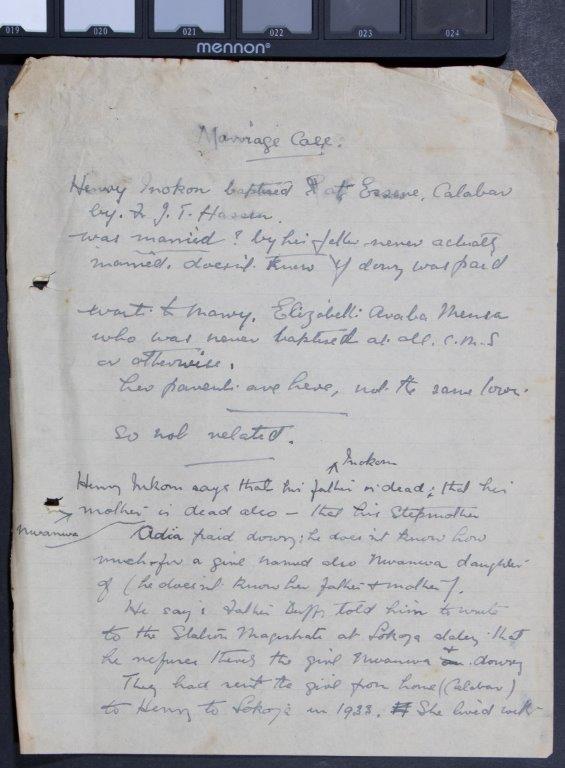 019 020 021 022 023 024
mennon®
Marriage Case.
Henry Inokon baptised at Essene, Calabar
by. Fr J. T.
was married? by his father never actually
married. doesn't know if dowry was paid
wants to marry. Elizabeth Araba Mensa
who was never baptised at all. C.M.S
or otherwise.
her parents are here, not the same town.
so not related.
Inokon
Henry Inkom says that his father is dead; that his
mother is dead also – that his stepmother
Nwanwa
Adia paid dowry; he doesn't know how
much for a girl named also Nwanwa daughter
of (he doesn't know her father & mother).
He says Father Duffy told him to write
to the Station Magistrate at Lokoja stating that
he refuses the girl Nwanwa & dowry
They had sent the girl from home (Calabar)
to Henry to Lokoja in 1933. She lived with